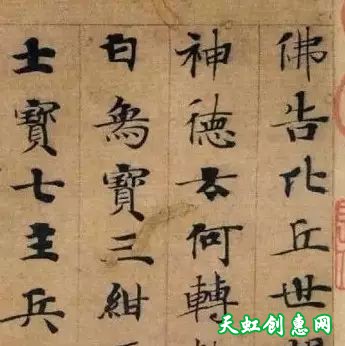 佛告比丘世
神德云何轉
白象寶三紺
士寶七主兵
天虹创惠网